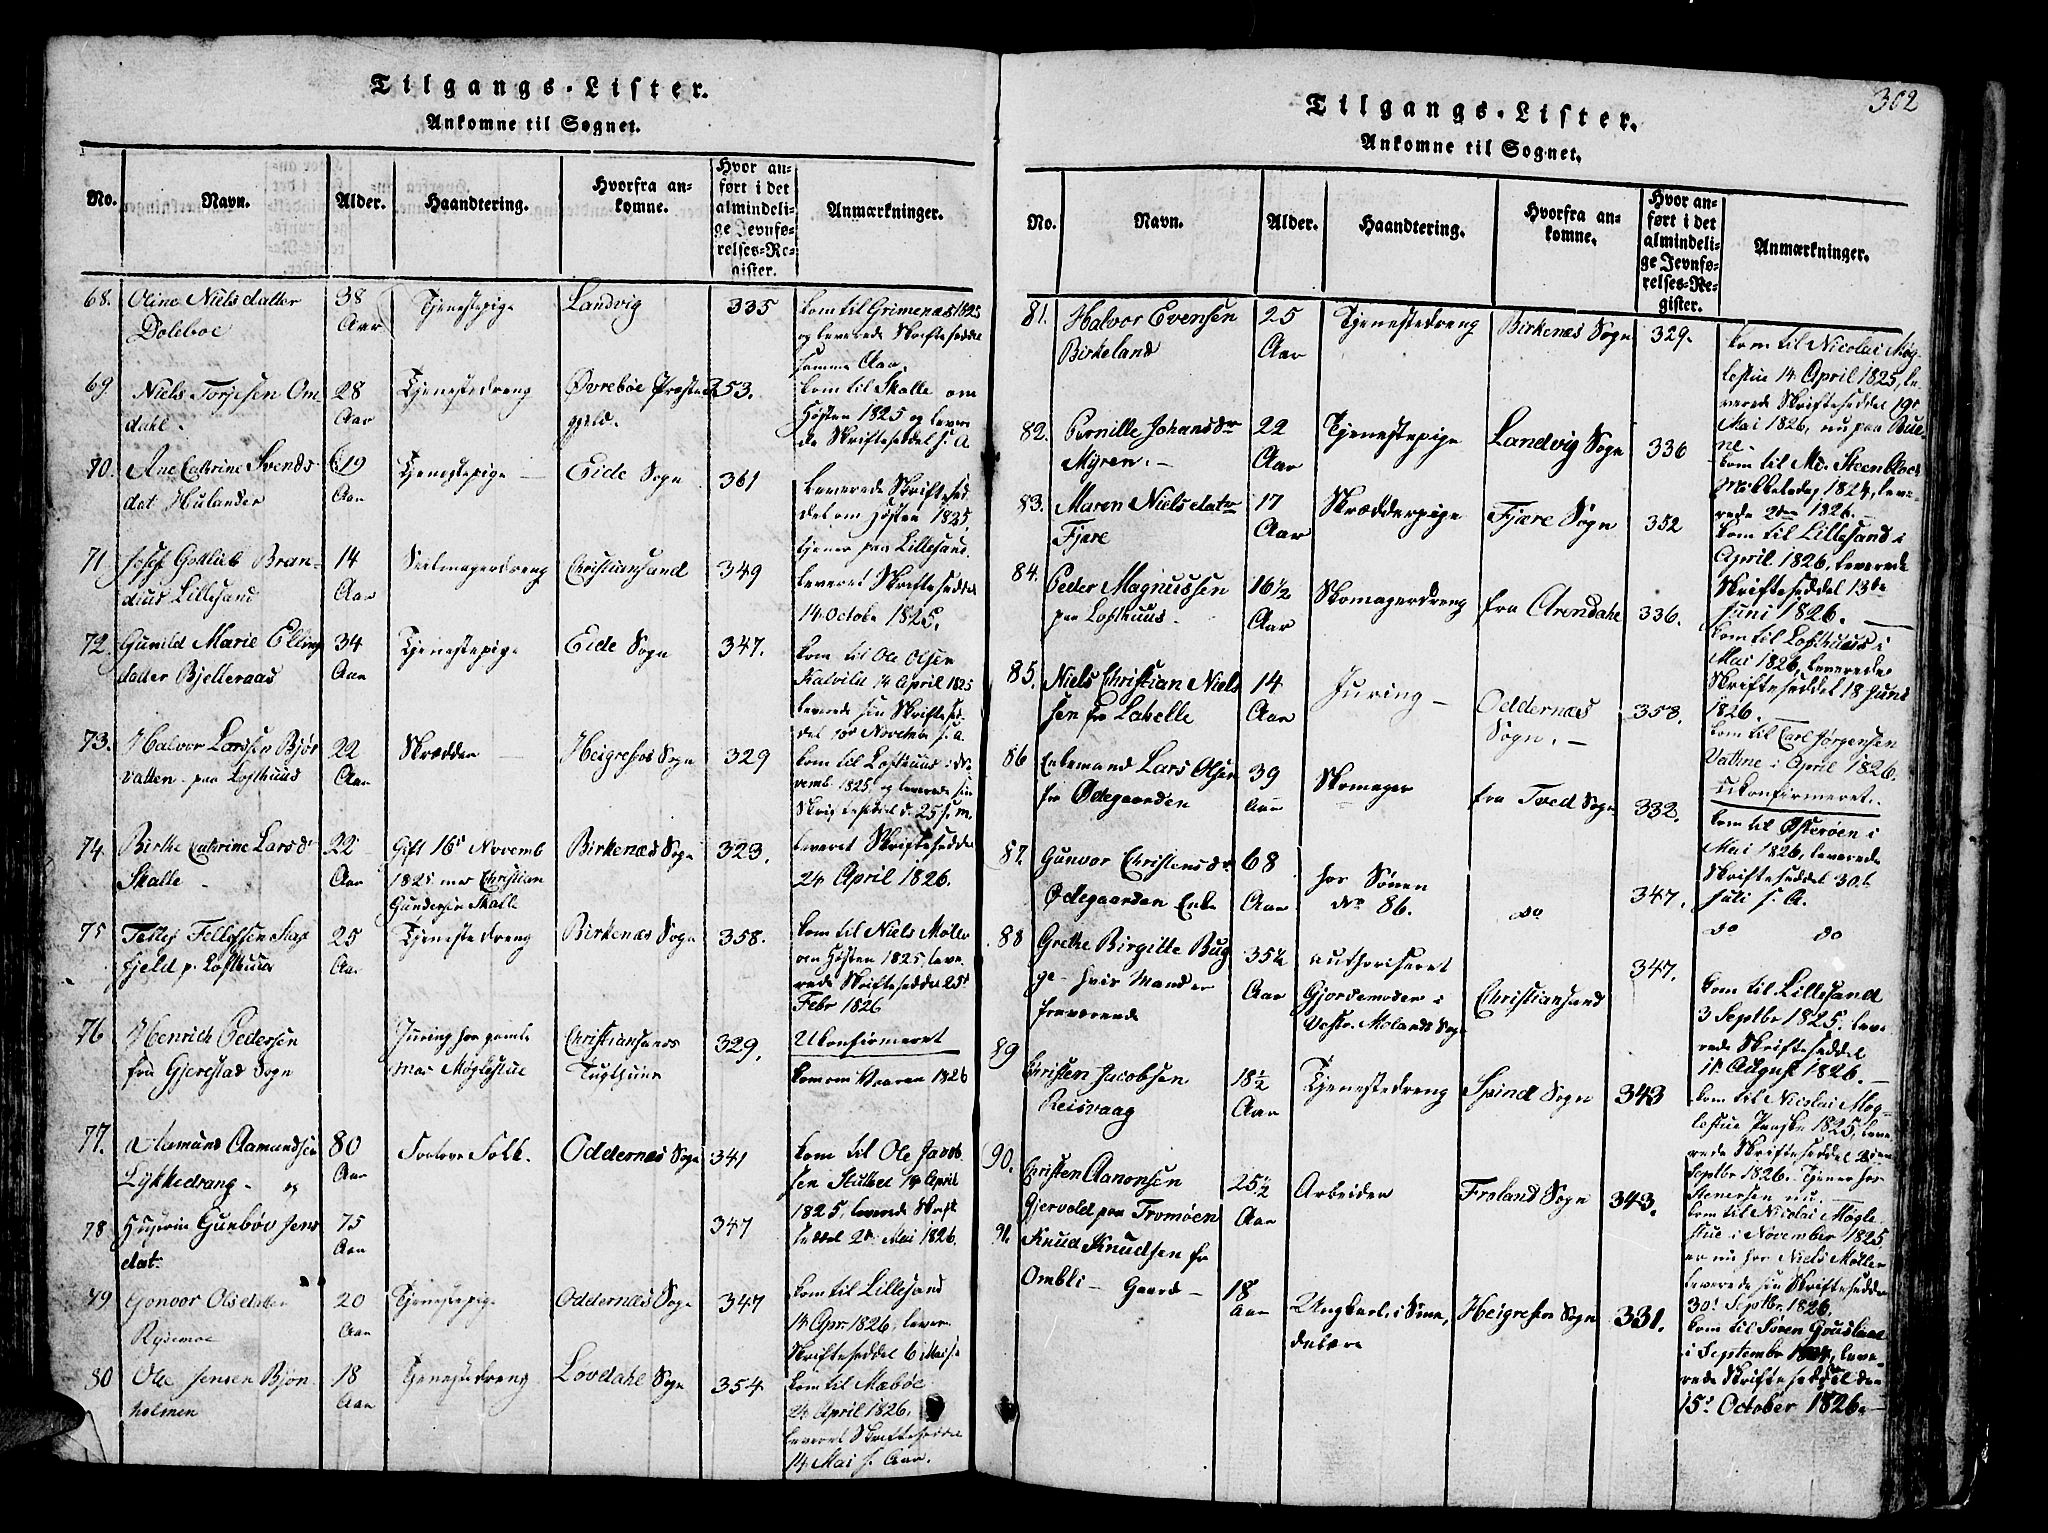 Tilgangs-Lister.
Ankomne til Sognet.
No. Navn. Alder. Haandtering. Hvorfra ankomne. Hvor anført i det almindelige Jevnførelses-Register. Anmærkninger.
68. Oline Nielsdatter Doleboe 38 Aar Tjenestepige Landvig 335 kom til Grimenæs 1825 og leverede Skrifteseddel samme Aar.
69 Niels Torjesen Omdahl. 28 Aar Tjenestedreng Øvrebøe Præstegjeld. 253. kom til Skalle om Høsten 1825 og leverede Skrifteseddel s. A
70. Ane Cathrine Svendsdat Hulander 19 Aar Tjenestepige Eide Sogn 361 leverede Skrifteseddel om Høsten 1825, tjener paa Lillesand.
71 Josef Gottlieb Brandius Lillesand 14 Aar Seilmagerdreng Christiansand 349 leveret Skrifteseddel 14 Octobr 1825.
72. Gunild Marie Ellingdatter Bjelleraas 34 Aar Tjenestepige Eide Sogn 347. kom til Ole Olsen Kalvild 14 April 1825 leverede sin Skrifteseddel Novembr s. A.
73. Halvor Larssen Bjørvatten paa Lofthuus 22 Aar Skrædder Heigrefos Sogn 329 kom til Lofthuus i Novemb. 1825, og leverede sin Skrifteseddel d. 25 s. m.
74 Birthe Cathrine Larsdr Skalle 22 Aar Gift 16d Novemb 1825 med Christian Gundersen Skalle Birkenæs Sogn 323. leveret Skrifteseddel 24 April 1826.
75 Tellef Tellefsen fjeld p. Lofthuus 25 Aar Tjenestedreng Birkenæs Sogn 358. kom til Niels Møller om Høsten 1825, leverede Skrifteseddel Febr 1826
76 Henrich Pedersen fra Gjerestad Sogn Juring hos gamle Mad Møglestue Christiansands Tugthuus 329. Ukonfirmeret kom om Vaaren 1826
77. Aamund Aamundsen Lykkedrang og 80 Aar Folk. Oddernæs Sogn 341 kom til Ole Jacobsen 14 April 1825, leverede Skrifteseddel 2 Mai 1826.
78 Hustrue Gunbøv Jensdat. 75 Aar 347
79 Gonvor Olsdatter Rysemoe 20 Aar Tjenestepige Oddernæs Sogn 347 kom til Lillesand 14 Apr. 1826, lever. Skrifteseddel 6 Mai s.
80 Ole Jensen Bjønholmen 18 Aar Tjenestedreng Lovdahl Sogn 354 kom til Mæbøe 24 April 1826. leveret Skrifteseddel 14 Mai s. Aar.
302
Tilgangs-Lister.
Ankomne til Sognet.
No. Navn. Alder. Haandtering. Hvorfra ankomne. Hvor anført i det almindelige Jevnførelses-Register. Anmærkninger.
81. Halvor Evensen Birkeland 25 Aar Tjenestedreng Birkenæs Sogn 329. kom til Nicolai Møglestue 14 April 1825, leverede Skrifteseddel 19d Mai 1826, nu paa
82. Pernille Johansdr Myren. 22 Aar Tjenestepige Landvig Sogn 336 kom til Md. Steenkloes Mikkelsdag 1824, leverede 1826.
83. Maren Nielsdatr Fjære 17 Aar Skrædderpige Fjære Sogn 352 kom til Lillesand i April 1826, leverede Skrifteseddel 13de Juni 1826.
84. Peder Magnussen paa Lofthuus 16½ Aar Skomagerdreng fra Arendahl 336. kom til Lofthuus i Mai 1826, leverede Skrifteseddel 18 Juni 1826.
85. Niels Christian Nielssen fr Labelle 14 Aar Juring Oddernæs Sogn. 358. kom til Carl Jørgensen Vattne i April 1826. Ukonfirmeret.
86 Enkemand Lars Olsen fr Ødegaarden 39 Aar Skomager fra Tved Sogn 332. kom til Østerøen i Mai 1826, leverede Skrifteseddel 30d Juli s. A.
87. Gunvor Christensdr Ødegaarden Enke 68 Aar hos Sønen No 86. do 347. do do
88 Grethe Birgitte Bugge hvis Mand er fraværende 35½ Aar authoriseret Gjordemoder i Vestr. Molands Sogn Christiansand 347. kom til Lillesand 3 Septbr 1825. leverede Skrifteseddel 11 August 1826.
89 Christen Jacobsen Reisvaag 18½ Aar Tjenestedreng Spind Sogn 343 kom til Nicolai Møglestue Paaske 1825, leverede Skrifteseddel Septbr 1826. Tjener hos Stenersen nu.
90. Christen Aanonsen Gjervold paa Tromøen 25½ Aar Arbeider Froland Sogn 343. kom til Nicolai Møglestue i November 1825, er nu hos Niels Møller leverede sin Skrifteseddel 30d Septbr, 1826.
91. Knud Knudsen fr Ombli Gaard 18 Aar Ungkarl, i Heigrefos Sogn 331. kom til Søren i September leverede Skrifteseddel den 15d October 1826.